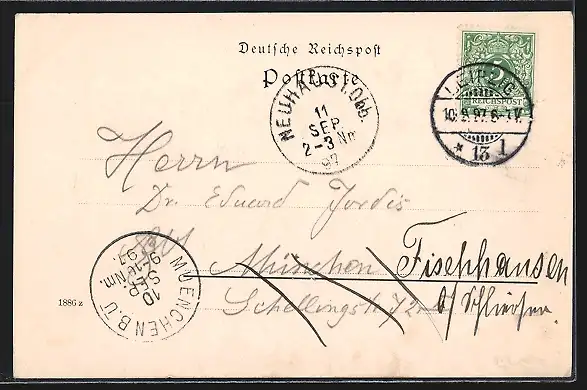 Deutsche Reichspost
Postkarte
5
REICHSPOST
LEIPZIG
10.9.97.6-7V.
* 13 1
NEUHAUS I.Obb.
11
SEP
2-3 Nm
97
Herrn
Dr. Eduard Jordis
München Fischhausen
Schellingstr. 72 b/ Schliersee
MUENCHEN B.Ü
10
SEP
Nm
97
1886 z